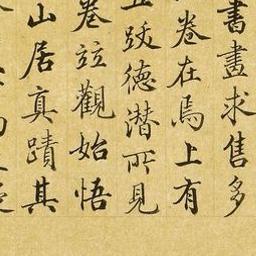 書畫求售多
卷在焉上有
跋德潛所見
卷竝觀始悟
山居真蹟其